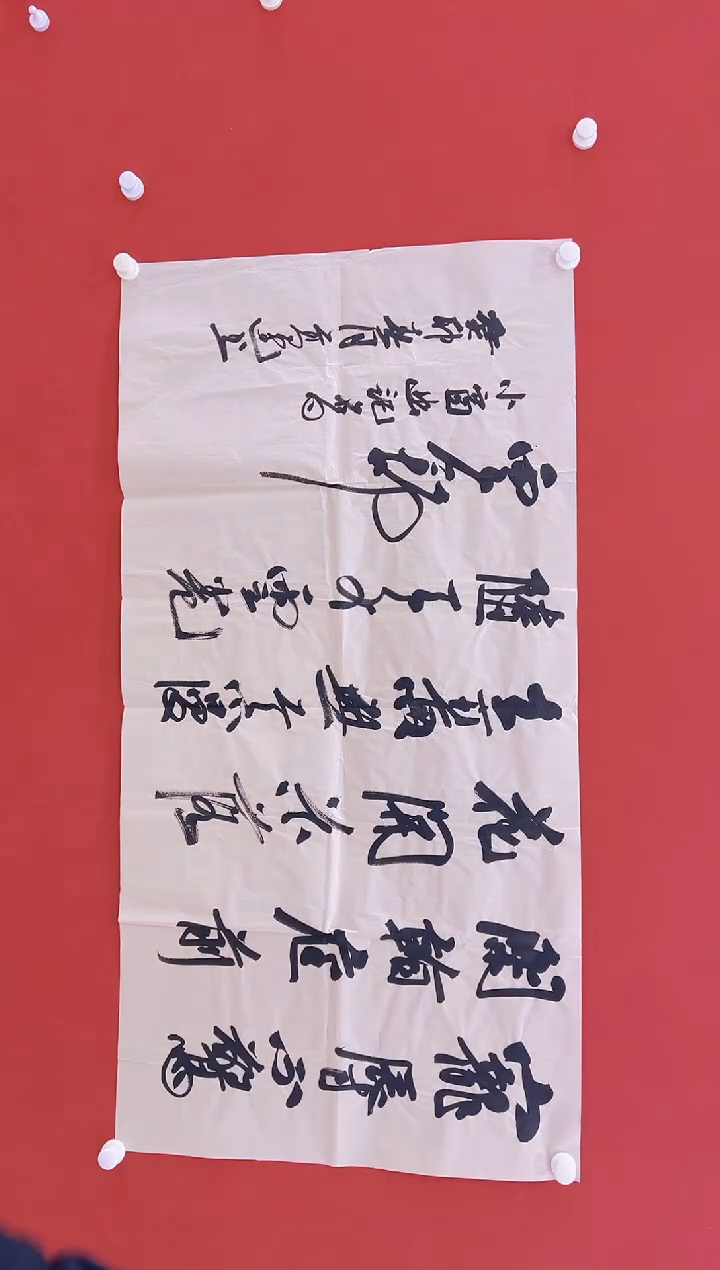 寵辱不驚
閑看庭前
花開花落
去留無意漫
隨天外雲卷
雲舒
小窗幽記句
癸卯春月